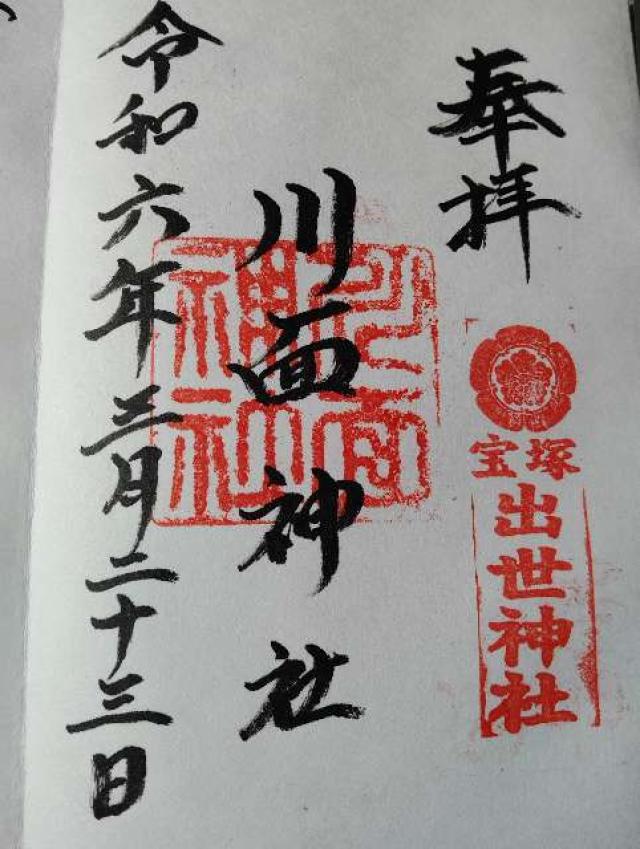 奉拝
宝塚
出世神社
川面神社
令和六年三月二十三日